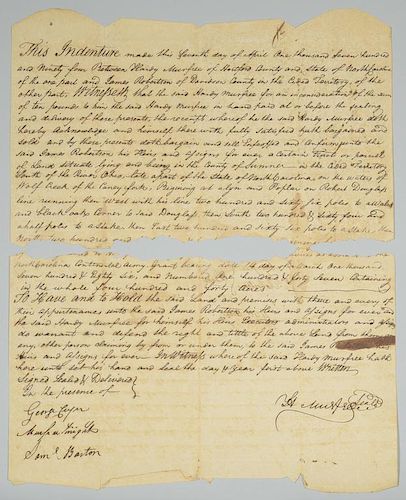 This Indenture made this Seventh day of April One thousand Seven hundred
and Ninety four Between Hardy Murfree of Hartford County and State of North Carolina
of the one part and James Robertson of Davidson County in the Ceded Territory, of the
other part, Witnesseth, that the said Hardy Murfree for an in consideration of the sum
of ten pounds to him the said Hardy Murfree in hand paid at or before the sealing
and delivery of these presents, the receipt whereof he the said Hardy Murfree doth
hereby Acknowledge and himself therewith fully Satisfied hath bargained and
Sold and by these presents doth bargain and sell Enfeoffed and Confirm unto the
said James Robertson, his Heirs and Assigns for ever a Certain tract or parcel
of Land situate lying and being in the County of Sumner in the Ceded Territory
South of the River Ohio, late a part of the State of North Carolina on the waters of
Wolf Creek of the Caney fork; Beginning at a Lynn and Poplar on Robert Douglass
line running then West with his line two hundred and sixty six poles to a
and black oak corner to said Douglass then South two hundred & sixty four and
half poles to a Stake then East two hundred and sixty six poles to a Stake then
North two hundred and
North Carolina Continental Army Grant bearing date 14 day of March One thousand
Seven hundred & Eighty six, and Numbered One hundred & forty Seven Containing
in the whole four hundred and forty Acres
To Have and to Hold the said Land and premises with those and every of
their appurtenances unto the said James Robertson his Heirs and Assigns for ever and
the said Hardy Murfree for himself his Heirs Executors Administrators and Assigns
do warrant and defend the right and title of the above Land from them
any other person claiming by from or under them, to the said James
Heirs and Assigns for ever. In Witness where of the said Hardy Murfree hath
here unto set his hand and seal the day & year first above Written
Signed Sealed & Delivered
In the presence of
H Murfree Seal
George
Knight
Saml. Barton